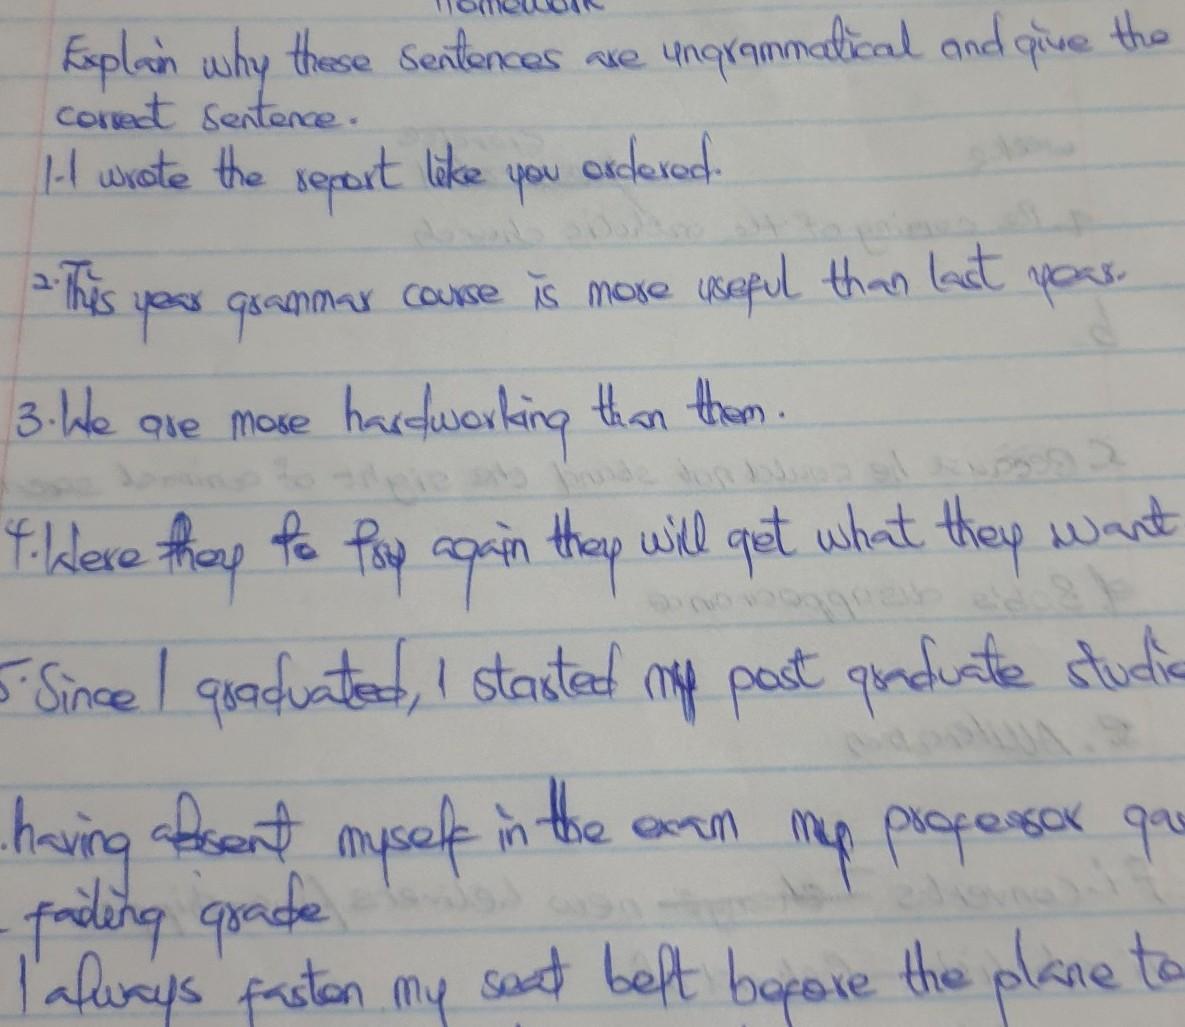 Homework
Explain why these sentences are ungrammatical and give the
correct sentence.
1. I wrote the report like you ordered.
2. This year grammar course is more useful than last year.
3. We are more hardworking than them.
4. Were they to try again they will get what they want
5. Since I graduated, I started my post graduate studie
having absent myself in the exam my professor gav
failing grade
I always fasten my seat belt before the plane to